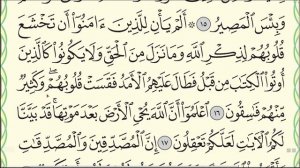 وَبِئْسَ ٱلْمَصِيرُ ١٥ ۞ أَلَمْ يَأْنِ لِلَّذِينَ ءَامَنُوٓا۟ أَن تَخْشَعَ
قُلُوبُهُمْ لِذِكْرِ ٱللَّهِ وَمَا نَزَلَ مِنَ ٱلْحَقِّ وَلَا يَكُونُوا۟ كَٱلَّذِينَ
أُوتُوا۟ ٱلْكِتَٰبَ مِن قَبْلُ فَطَالَ عَلَيْهِمُ ٱلْأَمَدُ فَقَسَتْ قُلُوبُهُمْ ۖ وَكَثِيرٌ
مِّنْهُمْ فَٰسِقُونَ ١٦ ٱعْلَمُوٓا۟ أَنَّ ٱللَّهَ يُحْىِ ٱلْأَرْضَ بَعْدَ مَوْتِهَا ۚ قَدْ بَيَّنَّا
لَكُمُ ٱلْءَايَٰتِ لَعَلَّكُمْ تَعْقِلُونَ ١٧ إِنَّ ٱلْمُصَّدِّقِينَ وَٱلْمُصَّدِّقَٰتِ